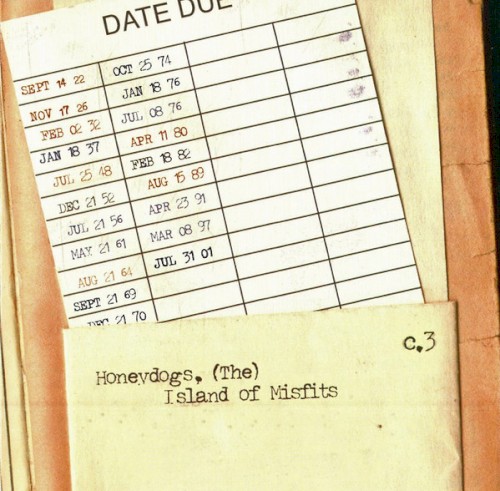 DATE DUE
SEPT 14 22
NOV 17 26
FEB 02 32
JAN 18 37
JUL 25 48
DEC 21 52
JUL 21 56
MAY 21 61
AUG 21 64
SEPT 21 69
DEC 21 70
OCT 25 74
JAN 18 76
JUL 08 76
APR 11 80
FEB 18 82
AUG 15 89
APR 23 91
MAR 08 97
JUL 31 01
c.3
Honeydogs, (The)
Island of Misfits